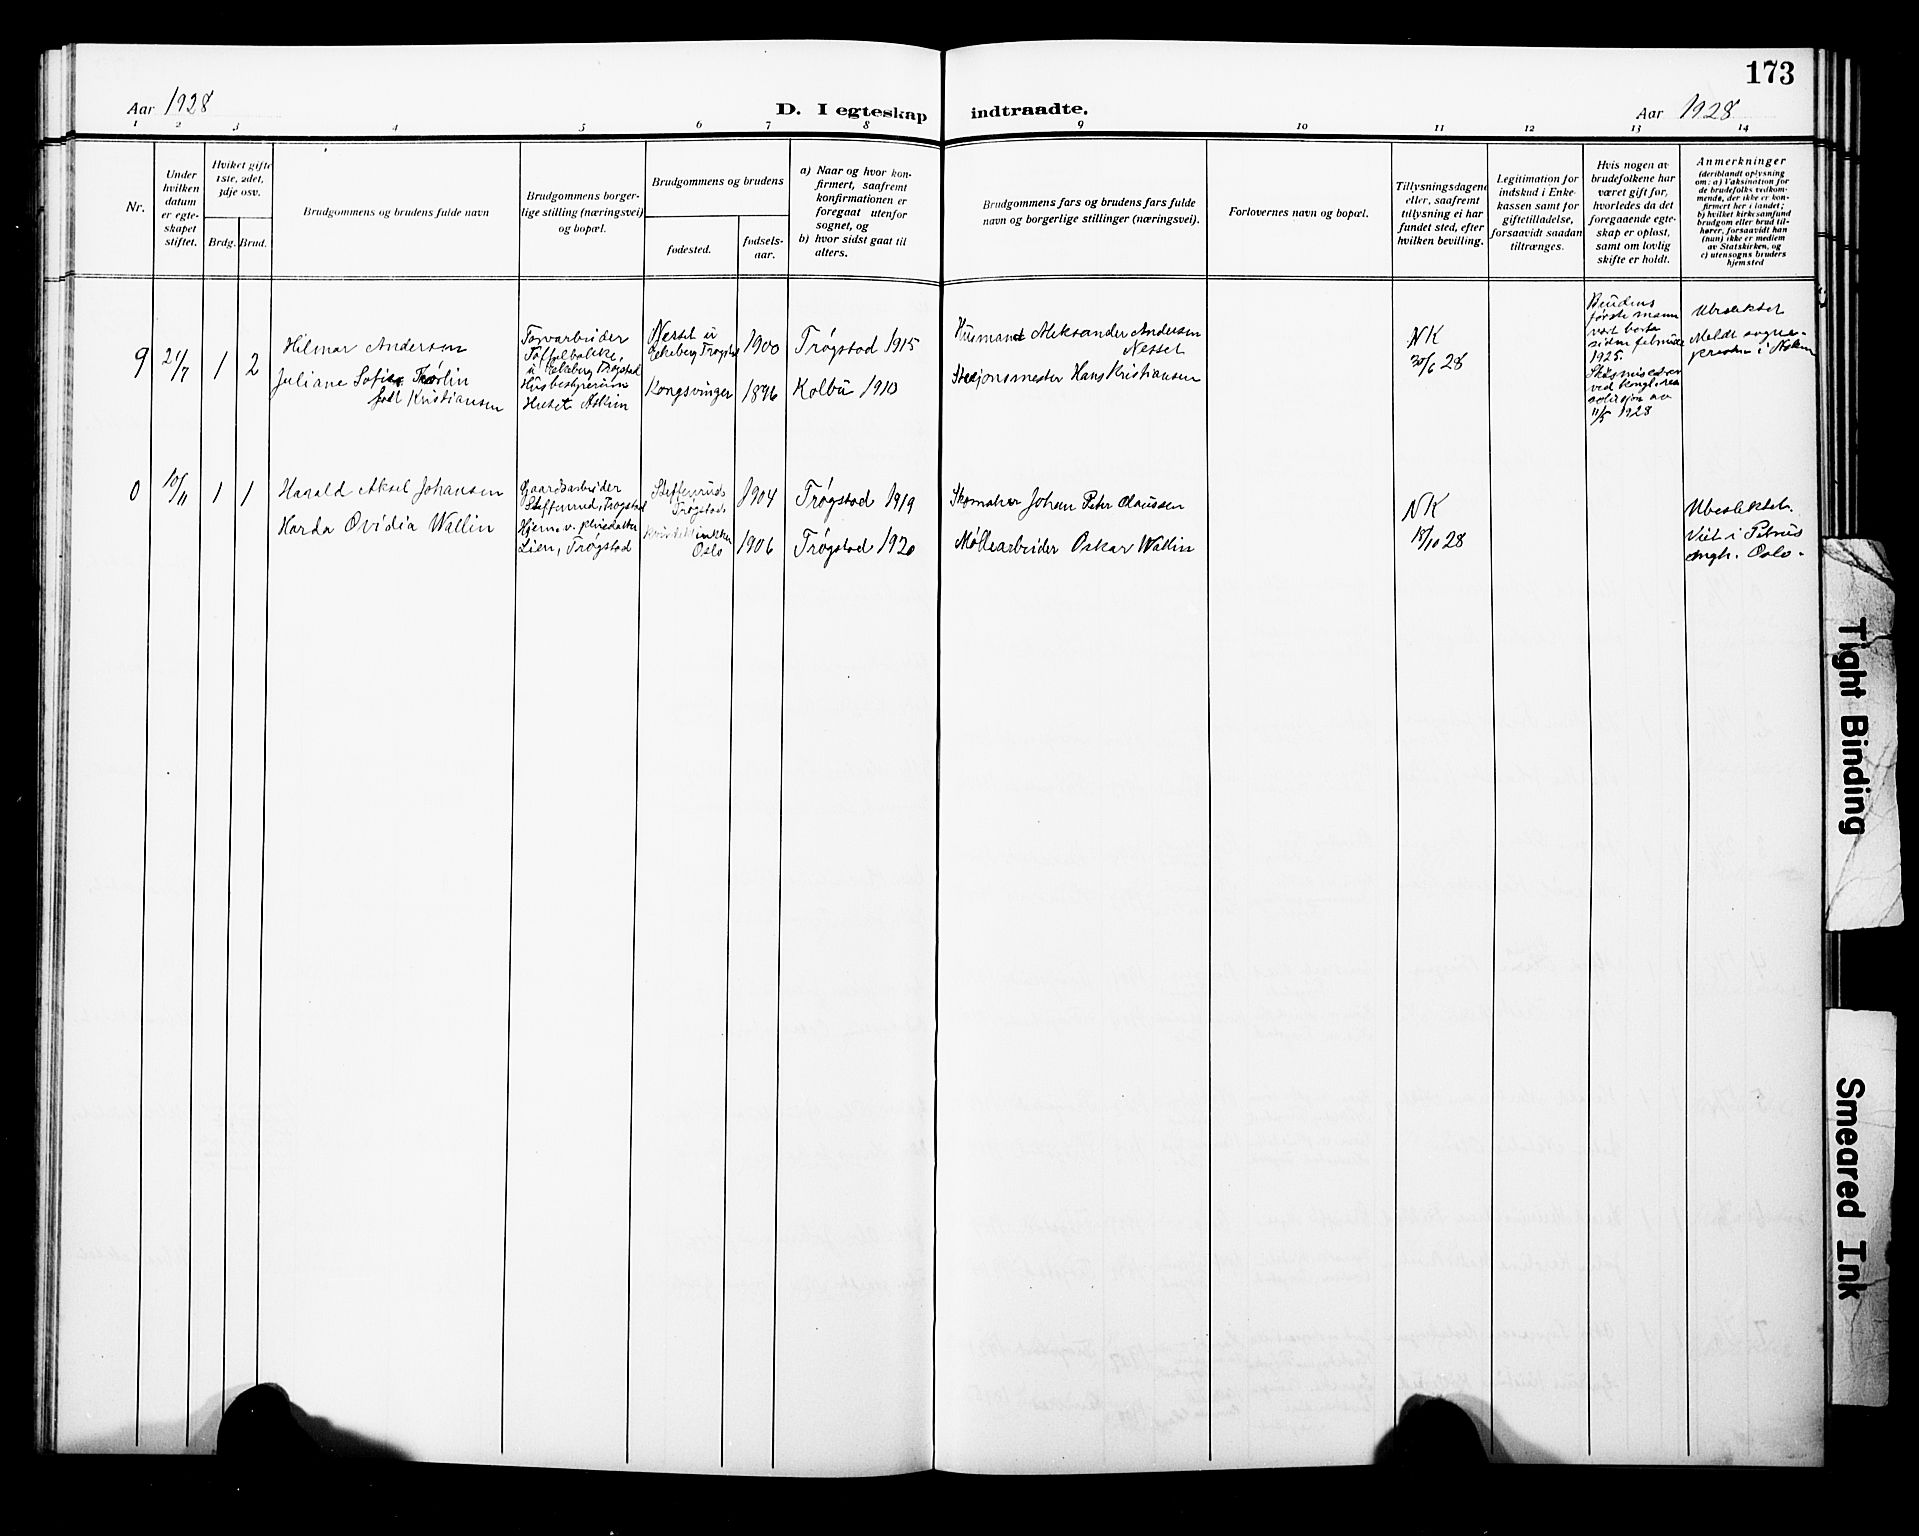 173
Aar 1928
D. I egteskap indtraadte.
Aar 1928
1 2 3 4 5 6 7 8 9 10 11 12 13 14
Nr.
Under
hvilken
datum
er egte-
skapet
stiftet.
Hviket gifte
1ste, 2det,
3dje osv.
Brdg. Brud.
Brudgommens og brudens fulde navn
Brudgommens borger-
lige stilling (næringsvei)
og bopæl.
Brudgommens og brudens
fødested.
fødsels-
aar.
a) Naar og hvor kon-
firmert, saafremt
konfirmationen er
foregaat utenfor
sognet, og
b) hvor sidst gaat til
alters.
Brudgommens fars og brudens fars fulde
navn og borgerlige stillinger (næringsvei).
Forlovernes navn og bopæl.
Tillysningsdagene
eller, saafremt
tillysning ei har
fundet sted, efter
hvilken bevilling.
Legitimation for
indskud i Enke-
kassen samt for
giftetilladelse,
forsaavidt saadan
tiltrænges.
Hvis nogen av
brudefolkene har
været gift før,
hvorledes da det
foregaaende egte-
skap er opløst,
samt om lovlig
skifte er holdt.
Anmerkninger
(deriblandt oplysning
om: a) Vaksination for
de brudefolks vedkom-
mende, der ikke er kon-
firmert her i landet;
b) hvilket kirkesamfund
brudgom eller brud til-
hører, forsaavidt han
(hun) ikke er medlem
av Statskirken, og
c) utensogns bruders
hjemsted
9
21/7
1
2
Hilmar Andersen
Juliane Sofie Thorlin
født Kristiansen
Torvarbeider
Toffelbakke,
u Ekeberg Trøgstad
Husbestyrerinn
Huset Askim
Nesset u
Eekeberg Trøgstad
Kongsvinger
1900
1896
Trøgstad 1915
Kolbu 1910
Husmand Aleksander Andersen
Nesset
Stasjonsmester Hans Kristiansen
NK
30/6 28
Brudens
første mann
vært borte
siden februar
1925.
Skilsmisse
ved kngl. res
av
11/5 1928
Ubeslektet
Meldt sogne-
presten i Askim
0
10/11
1
1
Harald Aksel Johansen
Harda Ovidia Wallin
Gaardsarbeider
Steffenrud, Trøgstad
Hjemmev.
Lien, Trøgstad
Steffenrud
Trøgstad
Oslo
1904
1906
Trøgstad 1919
Trøgstad 1920
Skomaker Johan Peter Claussen
Møllearbeider Oskar Wallin
NK
18/10 28
Ubeslektet.
Viet i Petrus
mgh. Oslo.
Tight Binding
Smeared Ink